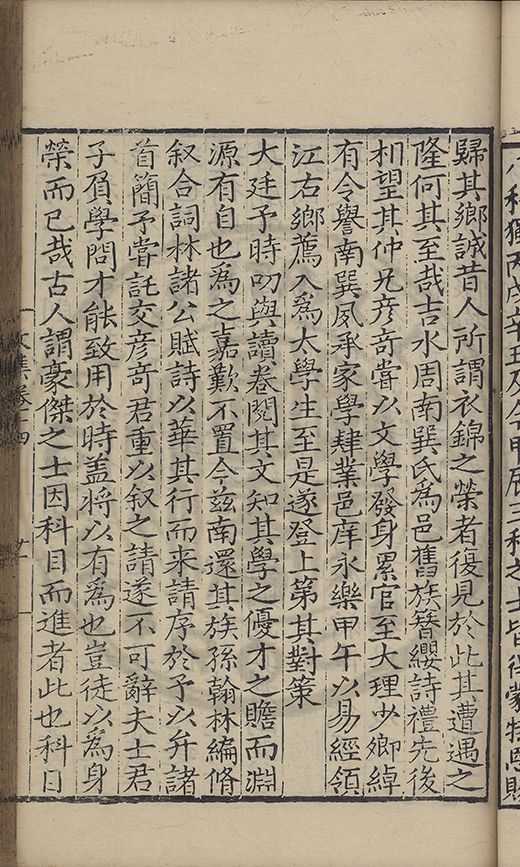 歸其鄉誠昔人所謂衣錦之榮者復見於此其遭遇之
隆何其至哉吉水周南巽氏爲邑舊族簪纓詩禮先後
相望其仲兄彦奇嘗以文學發身累官至大理少卿綽
有令譽南巽夙承家學肄業邑庠永樂甲午以易經領
江右鄉薦入爲太學生至是遂登上第其對策
大廷予時叨與讀卷閲其文知其學之優才之贍而淵
源有自也爲之嘉歎不置今兹南還其族孫翰林編脩
叙合詞林諸公賦詩以華其行而来請序於予以弁諸
首簡予嘗託交彦奇君重以叙之請遂不可辭夫士君
子負學問才能致用於時盖將以有爲也豈徒以爲身
榮而已哉古人謂豪傑之士因科目而進者此也科目